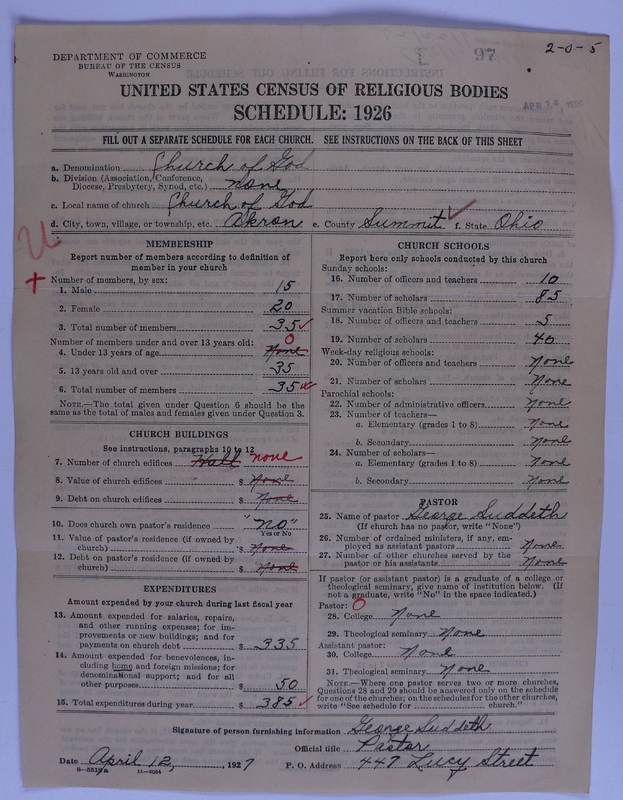 2-0-5
97
DEPARTMENT OF COMMERCE
BUREAU OF THE CENSUS
WASHINGTON
UNITED STATES CENSUS OF RELIGIOUS BODIES
SCHEDULE: 1926
FILL OUT A SEPARATE SCHEDULE FOR EACH CHURCH. SEE INSTRUCTIONS ON THE BACK OF THIS SHEET
a. Denomination Church of God
b. Division (Association, Conference,
Diocese, Presbytery, Synod, etc.) none
c. Local name of church Church of God
d. City, town, village, or township, etc. Akron e. County Summit f. State Ohio
MEMBERSHIP
Report number of members according to definition of
member in your church
Number of members, by sex:
1. Male 15
2. Female 20
3. Total number of members 35
Number of members under and over 13 years old: 0
4. Under 13 years of age None
5. 13 years old and over 35
6. Total number of members 35
NOTE.—The total given under Question 6 should be the
same as the total of males and females given under Question 3.
CHURCH BUILDINGS
See instructions, paragraphs 10 to 12
7. Number of church edifices Hall none
8. Value of church edifices $ None
9. Debt on church edifices $ None
10. Does church own pastor's residence "no"
Yes or No
11. Value of pastor's residence (if owned by
church) $ None
12. Debt on pastor's residence (if owned by
church) $ None
EXPENDITURES
Amount expended by your church during last fiscal year
13. Amount expended for salaries, repairs,
and other running expenses; for im-
provements or new buildings; and for
payments on church debt $ 335
14. Amount expended for benevolences, in-
cluding home and foreign missions; for
denominational support; and for all
other purposes $ 50
15. Total expenditures during year $ 385
CHURCH SCHOOLS
Report here only schools conducted by this church
Sunday schools:
16. Number of officers and teachers 10
17. Number of scholars 85
Summer vacation Bible schools:
18. Number of officers and teachers 5
19. Number of scholars 40
Week-day religious schools:
20. Number of officers and teachers None
21. Number of scholars None
Parochial schools:
22. Number of administrative officers None
23. Number of teachers—
a. Elementary (grades 1 to 8) None
b. Secondary None
24. Number of scholars—
a. Elementary (grades 1 to 8) None
b. Secondary None
PASTOR
25. Name of pastor George Suddeth
(If church has no pastor, write "None")
26. Number of ordained ministers, if any, em-
ployed as assistant pastors None
27. Number of other churches served by the
pastor or his assistants None
If pastor (or assistant pastor) is a graduate of a college or
theological seminary, give name of institution below. (If
not a graduate, write "No" in the space indicated.)
Pastor: 0
28. College None
29. Theological seminary None
Assistant pastor:
30. College None
31. Theological seminary None
NOTE.—Where one pastor serves two or more churches,
Questions 28 and 29 should be answered only on the schedule
for one of the churches; on the schedules for the other churches,
write "See schedule for church."
Signature of person furnishing information George Suddeth
Official title Pastor
Date April 12, 1927 P. O. Address 447 Lucy Street
8-5518a 11-9064